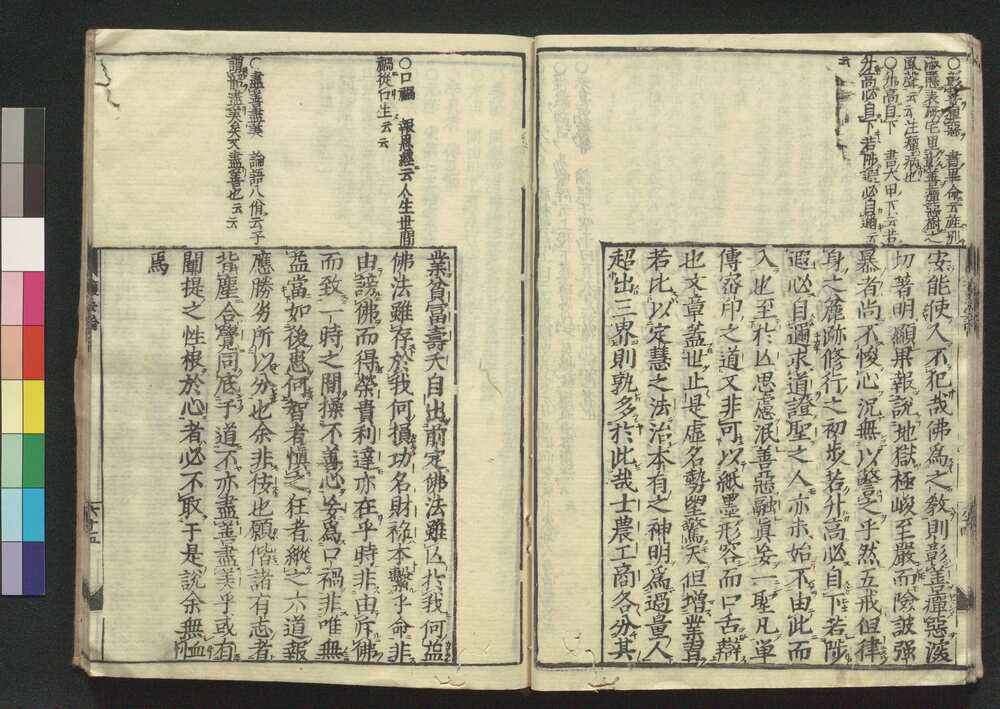 ○彰善癉惡　書畢命云旌別
淑慝表厥宅里彰善癉惡樹之
風聲云云注癉病也
○升高自下　書大甲下云若
升高必自下若陟遐必自邇云
云
安能使人不犯哉佛為之教則彰善癉惡深
切著明顯果報說地獄極峻至嚴而險詖強
暴者尚不悛心況無以警之乎然五戒但律
身之麁跡修行之初步若升高必自下若陟
遐必自邇求道證聖之人亦未始不由此而
入也至於亡思慮泯善惡融真妄一聖凡單
傳密印之道又非可以紙墨形容而口舌辯
也文章蓋世止是虛名勢望驚天但增業習
若比以定慧之法治本有之神明為過量人
超出三界則孰多於此哉士農工商各分其
○口禍　報恩經云人生世間
禍從口生云云
○盡善盡美　論語八佾云子
謂韶盡美矣又盡善也云云
業貧富壽夭自出前定佛法雖亡於我何益
佛法雖存於我何損功名財祿本繫乎命非
由謗佛而得榮貴利達亦在乎時非由斥佛
而致一時之間操不善心妄為口禍非唯無
益當如後患何智者慎之狂者縱之六道報
應勝劣所以分也余非佞也願偕諸有志者
背塵合覺同底于道不亦盡善盡美乎或有
闡提之性根於心者必不取于是說余無慍
焉
六十五